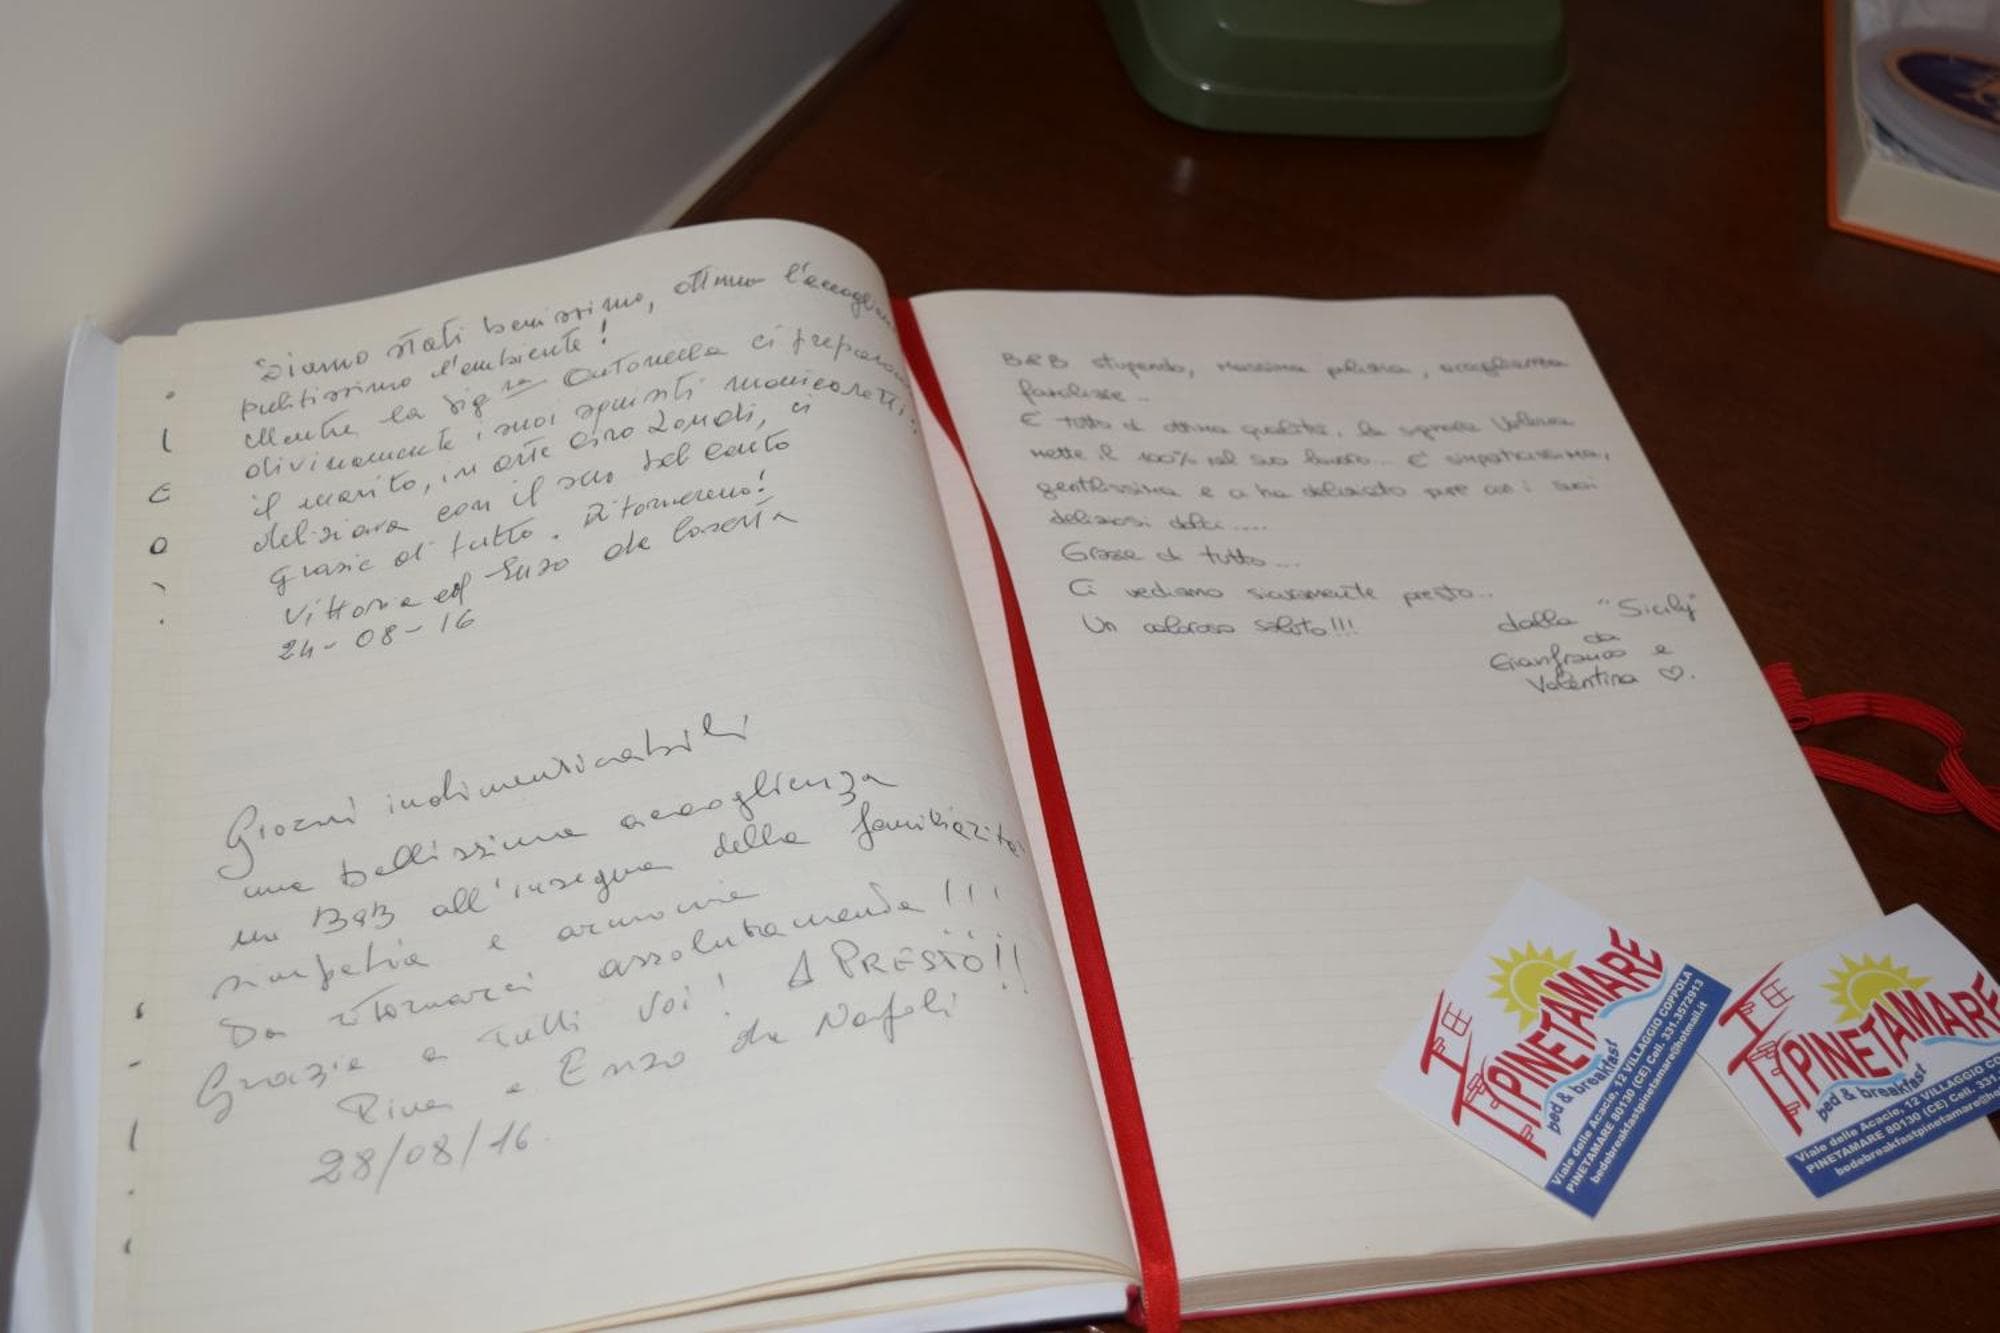 Siamo stati benissimo, ottimo l'accoglien
pulitissimo l'ambiente!
Mentre la Sig.ra Antonella ci preparava
divinamente i suoi squisiti manicaretti,
il marito, in arte Ciro Zondi, ci
deliziava con il suo bel canto
grazie di tutto. Ritorneremo!
Vittoria ed Enzo da Caserta
24-08-16
Giorni indimenticabili
una bellissima accoglienza
un B&B all'insegna della familiarità
simpatia e armonia
Da ritornarci assolutamente!!!
Grazie a tutti voi! A PRESTO!!
Pina e Enzo da Napoli
28/08/16.
B&B stupendo, massima pulizia, accoglienza
favolosa...
E' tutto di ottima qualità, la signora
mette il 100% nel suo lavoro... E' simpaticissima,
gentilissima e ci ha deliziato con i suoi
deliziosi dolci.....
Grazie di tutto...
Ci vediamo sicuramente presto...
Un caloroso saluto!!!
dalla "Sicily"
da
Gianfranco e
Valentina ♡.
PINETAMARE
bed & breakfast
Viale delle Acacie, 12 VILLAGGIO COPPOLA
PINETAMARE 80130 (CE) Cell. 331.3572913
bedebreakfastpinetamare@hotmail.it
PINETAMARE
bed & breakfast
Viale delle Acacie, 12 VILLAGGIO CO
PINETAMARE 80130 (CE) Cell. 331.
bedebreakfastpinetamare@ho